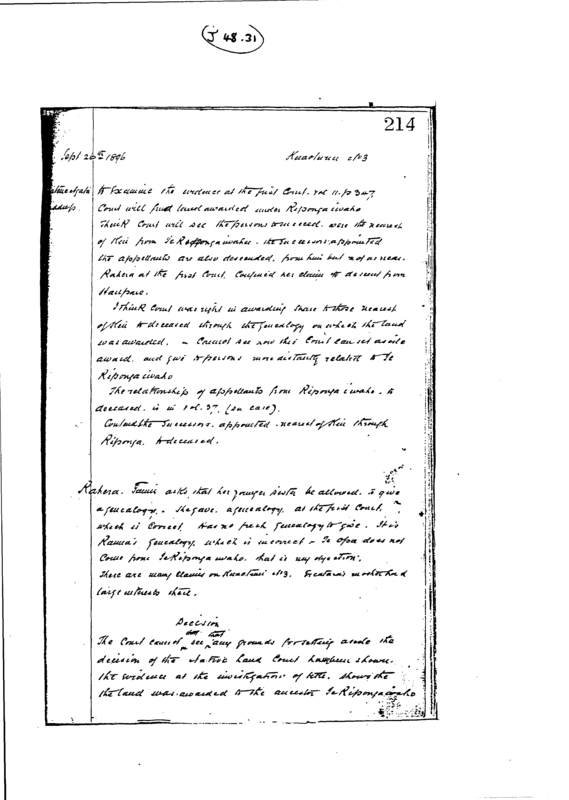 J 48.31
214
Sept 26th 1896 Kuaotunu No 3
to Examine the evidence at the first Court. vol 11. p 3
Court will find land awarded under Riponga i waho
Think Court will see the persons to succeed were the nearest
of Kin from Te Riponga i waho. the successors appointed
the appellants are also descended from him but not as near.
Rahera at the first Court, Confined her claim to descent from
I think Court was right in awarding share to those nearest
of Kin to deceased through the genealogy on which the land
was awarded. - Cannot see now this Court can set aside
award and give to persons more distantly related to Te
Riponga i waho
The relationship of appellants from Riponga i waho to
deceased is in vol. 37 (on case).
Contend the Successors appointed nearest of Kin through
Riponga to deceased.
Rahera. asks that her younger sister be allowed to give
a genealogy. She gave a genealogy at the first Court,
which is Correct. Has no fresh genealogy to give. It is
genealogy which is incorrect - Te Apa does not
Come from Te Riponga i waho. that is my objection.
There are many claims on Kuaotunu No 3. mother had
large interests there.
Decision
The Court cannot see that any grounds for setting aside the
decision of the Native Land Court have been shown.
the evidence at the investigation of title shows the
the land was awarded to the ancestor Te Riponga i waho